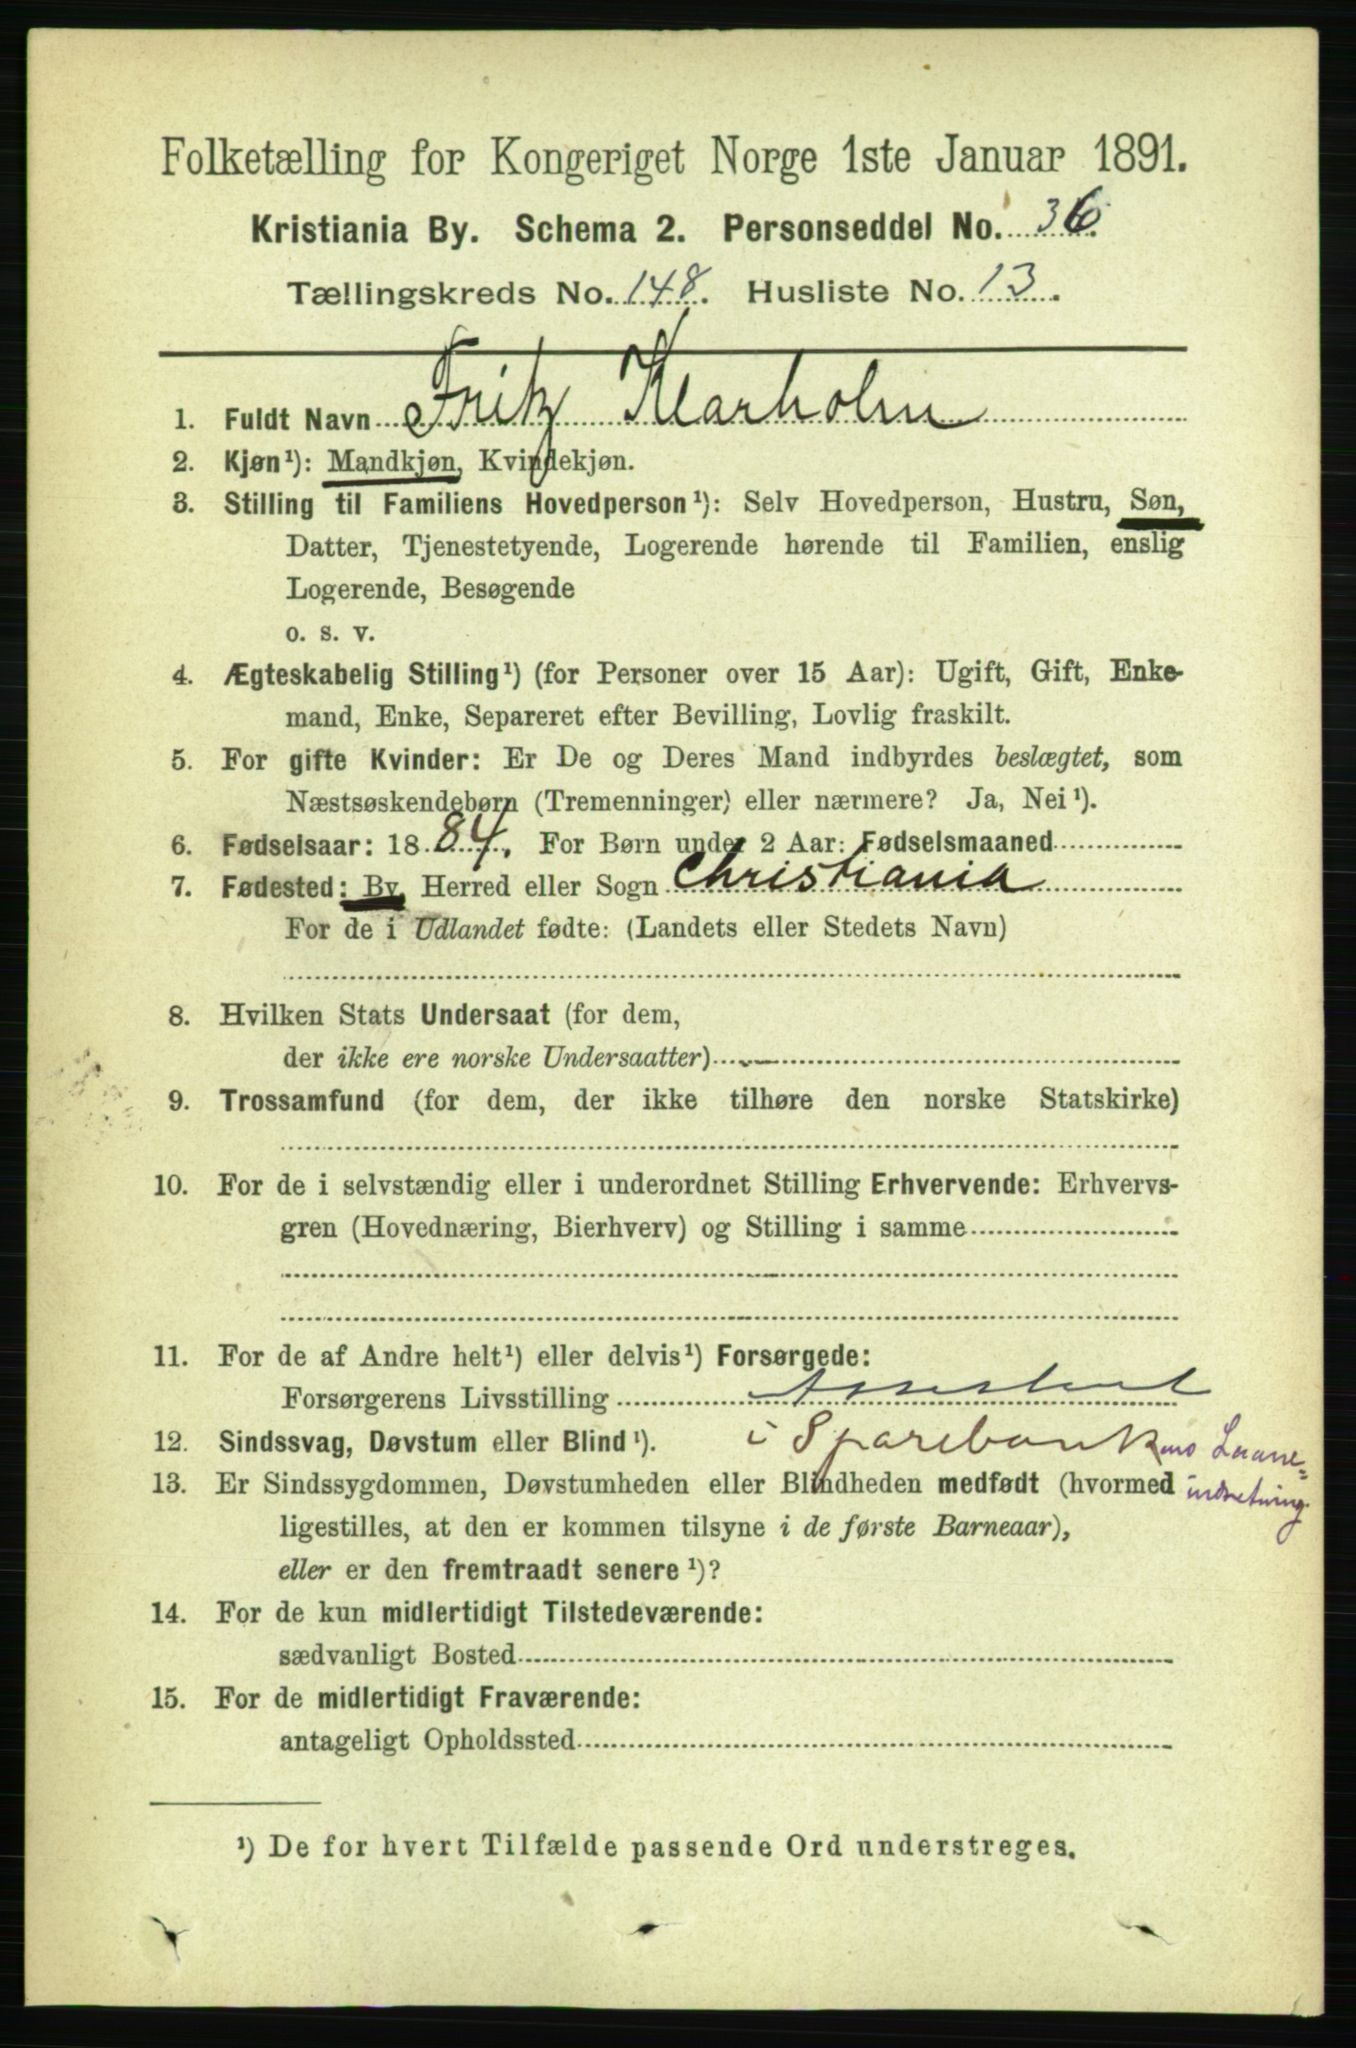 Folketælling for Kongeriget Norge 1ste Januar 1891.
Kristiania By. Schema 2. Personseddel No. 36.
Tællingskreds No. 148. Husliste No. 13.
1. Fuldt Navn Fritz Klarholm
2. Kjøn¹): Mandkjøn, Kvindekjøn.
3. Stilling til Familiens Hovedperson¹): Selv Hovedperson, Hustru, Søn,
Datter, Tjenestetyende, Logerende hørende til Familien, enslig
Logerende, Besøgende
o. s. v.
4. Ægteskabelig Stilling¹) (for Personer over 15 Aar): Ugift, Gift, Enke-
mand, Enke, Separeret efter Bevilling, Lovlig fraskilt.
5. For gifte Kvinder: Er De og Deres Mand indbyrdes beslægtet, som
Næstsøskendebørn (Tremenninger) eller nærmere? Ja, Nei¹).
6. Fødselsaar: 1884. For Børn under 2 Aar: Fødselsmaaned
7. Fødested: By, Herred eller Sogn Christiania
For de i Udlandet fødte: (Landets eller Stedets Navn)
8. Hvilken Stats Undersaat (for dem,
der ikke ere norske Undersaatter)
9. Trossamfund (for dem, der ikke tilhøre den norske Statskirke)
10. For de i selvstændig eller i underordnet Stilling Erhvervende: Erhvervs-
gren (Hovednæring, Bierhverv) og Stilling i samme
11. For de af Andre helt¹) eller delvis¹) Forsørgede:
Forsørgerens Livsstilling Assistent
12. Sindssvag, Døvstum eller Blind¹). i Sparebankens Laane=
13. Er Sindssygdommen, Døvstumheden eller Blindheden medfødt (hvormed indretning.
ligestilles, at den er kommen tilsyne i de første Barneaar),
eller er den fremtraadt senere¹)?
14. For de kun midlertidigt Tilstedeværende:
sædvanligt Bosted
15. For de midlertidigt Fraværende:
antageligt Opholdssted
¹) De for hvert Tilfælde passende Ord understreges.